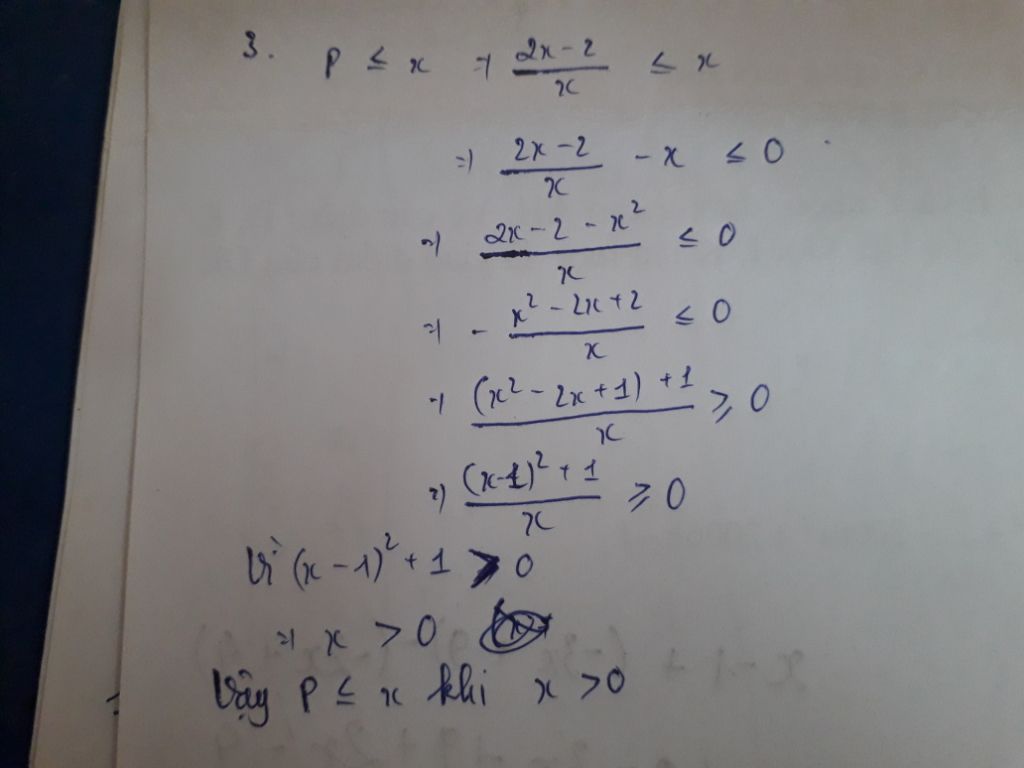 3. P ≤ x ⇒ (2x-2)/x ≤ x
⇒ (2x-2)/x - x ≤ 0
⇒ (2x-2-x²)/x ≤ 0
⇒ - (x²-2x+2)/x ≤ 0
⇒ ((x²-2x+1)+1)/x ≥ 0
⇒ ((x-1)²+1)/x ≥ 0
Vì (x-1)²+1 > 0
⇒ x > 0
Vậy P ≤ x khi x > 0